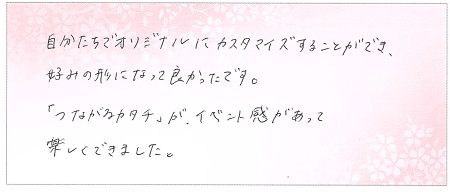 自分たちでオリジナルにカスタマイズすることができ、
好みの形になって良かったです。
「つながるカタチ」が、イベント感があって
楽しくできました。